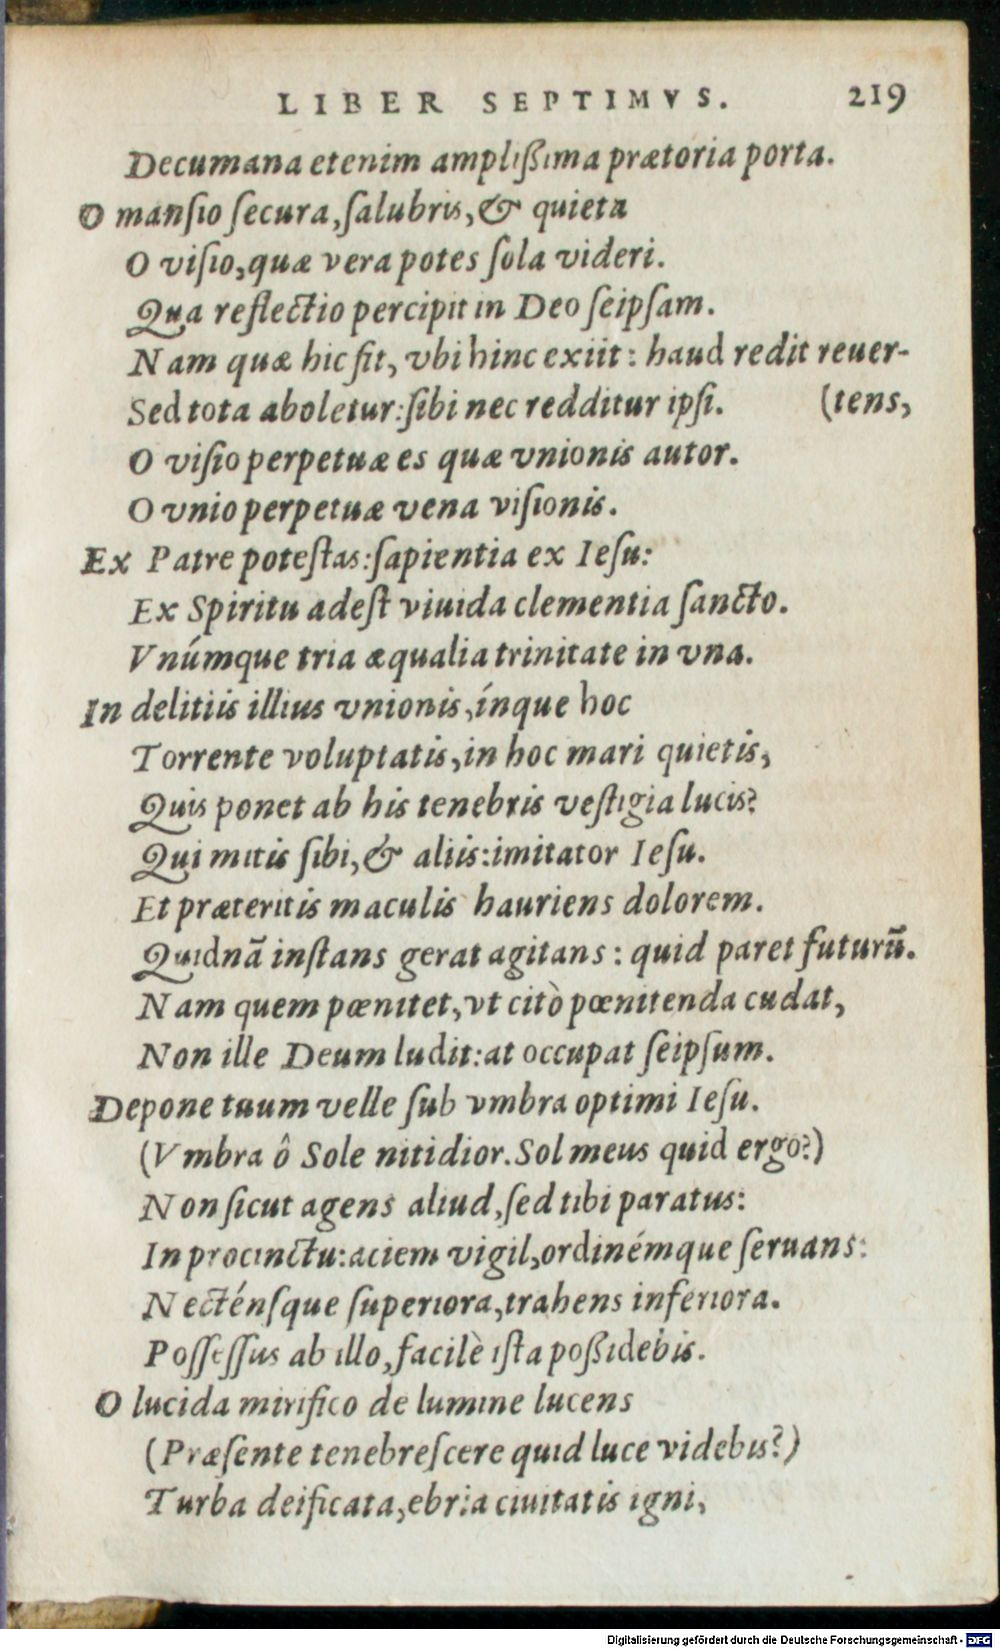 LIBER SEPTIMVS. 219
Decumana etenim ampliſsima prætoria porta.
O manſio ſecura, ſalubris, & quieta
O viſio, quæ vera potes ſola videri.
Qua reflectio percipit in Deo ſeipſam.
Nam quæ hic fit, vbi hinc exiit: haud redit reuer-
Sed tota aboletur: ſibi nec redditur ipſi. (tens,
O viſio perpetuæ es quæ vnionis autor.
O vnio perpetuæ vena viſionis.
Ex Patre poteſtas: ſapientia ex Ieſu:
Ex Spiritu adeſt viuida clementia ſancto.
Vnúmque tria æqualia trinitate in vna.
In delitiis illius vnionis, ínque hoc
Torrente voluptatis, in hoc mari quietis,
Quis ponet ab his tenebris veſtigia lucis?
Qui mitis ſibi, & aliis: imitator Ieſu.
Et præteritis maculis hauriens dolorem.
Quidnã inſtans gerat agitans: quid paret futurũ.
Nam quem pœnitet, vt citò pœnitenda cudat,
Non ille Deum ludit: at occupat ſeipſum.
Depone tuum velle ſub vmbra optimi Ieſu.
(Vmbra ô Sole nitidior. Sol meus quid ergo?)
Non ſicut agens aliud, ſed tibi paratus:
In procinctu: aciem vigil, ordinémque ſeruans:
Necténſque ſuperiora, trahens inferiora.
Poſſeſſus ab illo, facilè iſta poſsidebis.
O lucida mirifico de lumine lucens
(Præſente tenebreſcere quid luce videbis?)
Turba deificata, ebria ciuitatis igni,
Digitalisierung gefördert durch die Deutsche Forschungsgemeinschaft - DFG